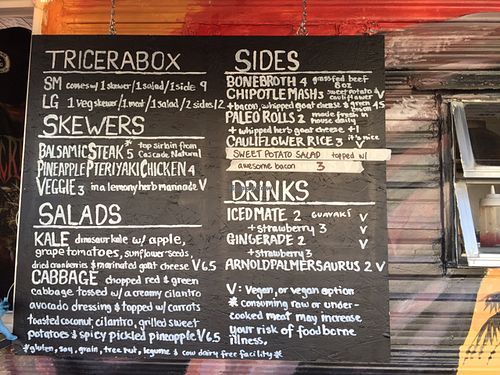 TRICERABOX
SM comes w/ 1 skewer / 1 salad / 1 side 9
LG 1 veg skewer / 1 meat / 1 salad / 2 sides 12
SKEWERS
BALSAMIC STEAK 5 top sirloin from Cascade Natural
PINEAPPLE PTERIYAKI CHICKEN 4
VEGGIE 3 in a lemony herb marinade V
SALADS
KALE dinosaur kale w/ apple,
grape tomatoes, sunflower seeds,
dried cranberries & marinated goat cheese V 6.5
CABBAGE chopped red & green
cabbage tossed w/ a creamy cilantro
avocado dressing & topped w/ carrots
toasted coconut, cilantro, grilled sweet
potatoes & spicy pickled pineapple V 6.5
*gluten, soy, grain, tree nut, legume & cow dairy free facility*
SIDES
BONEBROTH 4 grassfed beef 8oz
CHIPOTLE MASH 3 sweet potato & cauliflower V
+ bacon, whipped goat cheese & green onion 4.5
PALEO ROLLS 2 made fresh in house daily
+ whipped herb goat cheese +1
CAULIFLOWER RICE 3 it's nice V
SWEET POTATO SALAD topped w/
awesome bacon 3
DRINKS
ICED MATE 2 GUAYAKI V
+ strawberry 3
GINGERADE 2 V
+ strawberry 3
ARNOLDPALMERSAURUS 2 V
V: Vegan, or vegan option
* consuming raw or under-
cooked meat may increase
your risk of foodborne
illness.